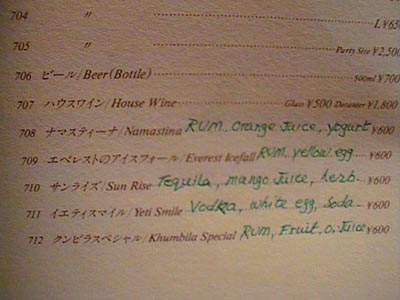 704 〃 L¥650
705 〃 Party Size ¥2,500
706 ビール/Beer(Bottle) 500ml ¥700
707 ハウスワイン/House Wine Glass ¥500 Decanter ¥1,800
708 ナマスティーナ/Namastina RUM, orange Juice, yogurt ¥600
709 エベレストのアイスフォール/Everest Icefall RUM, yellow egg ¥600
710 サンライズ/Sun Rise Tequila, mango Juice, herb ¥600
711 イエティスマイル/Yeti Smile Vodka, white egg, Soda ¥600
712 クンビラスペシャル/Khumbila Special RUM, Fruit, O. Juice ¥600